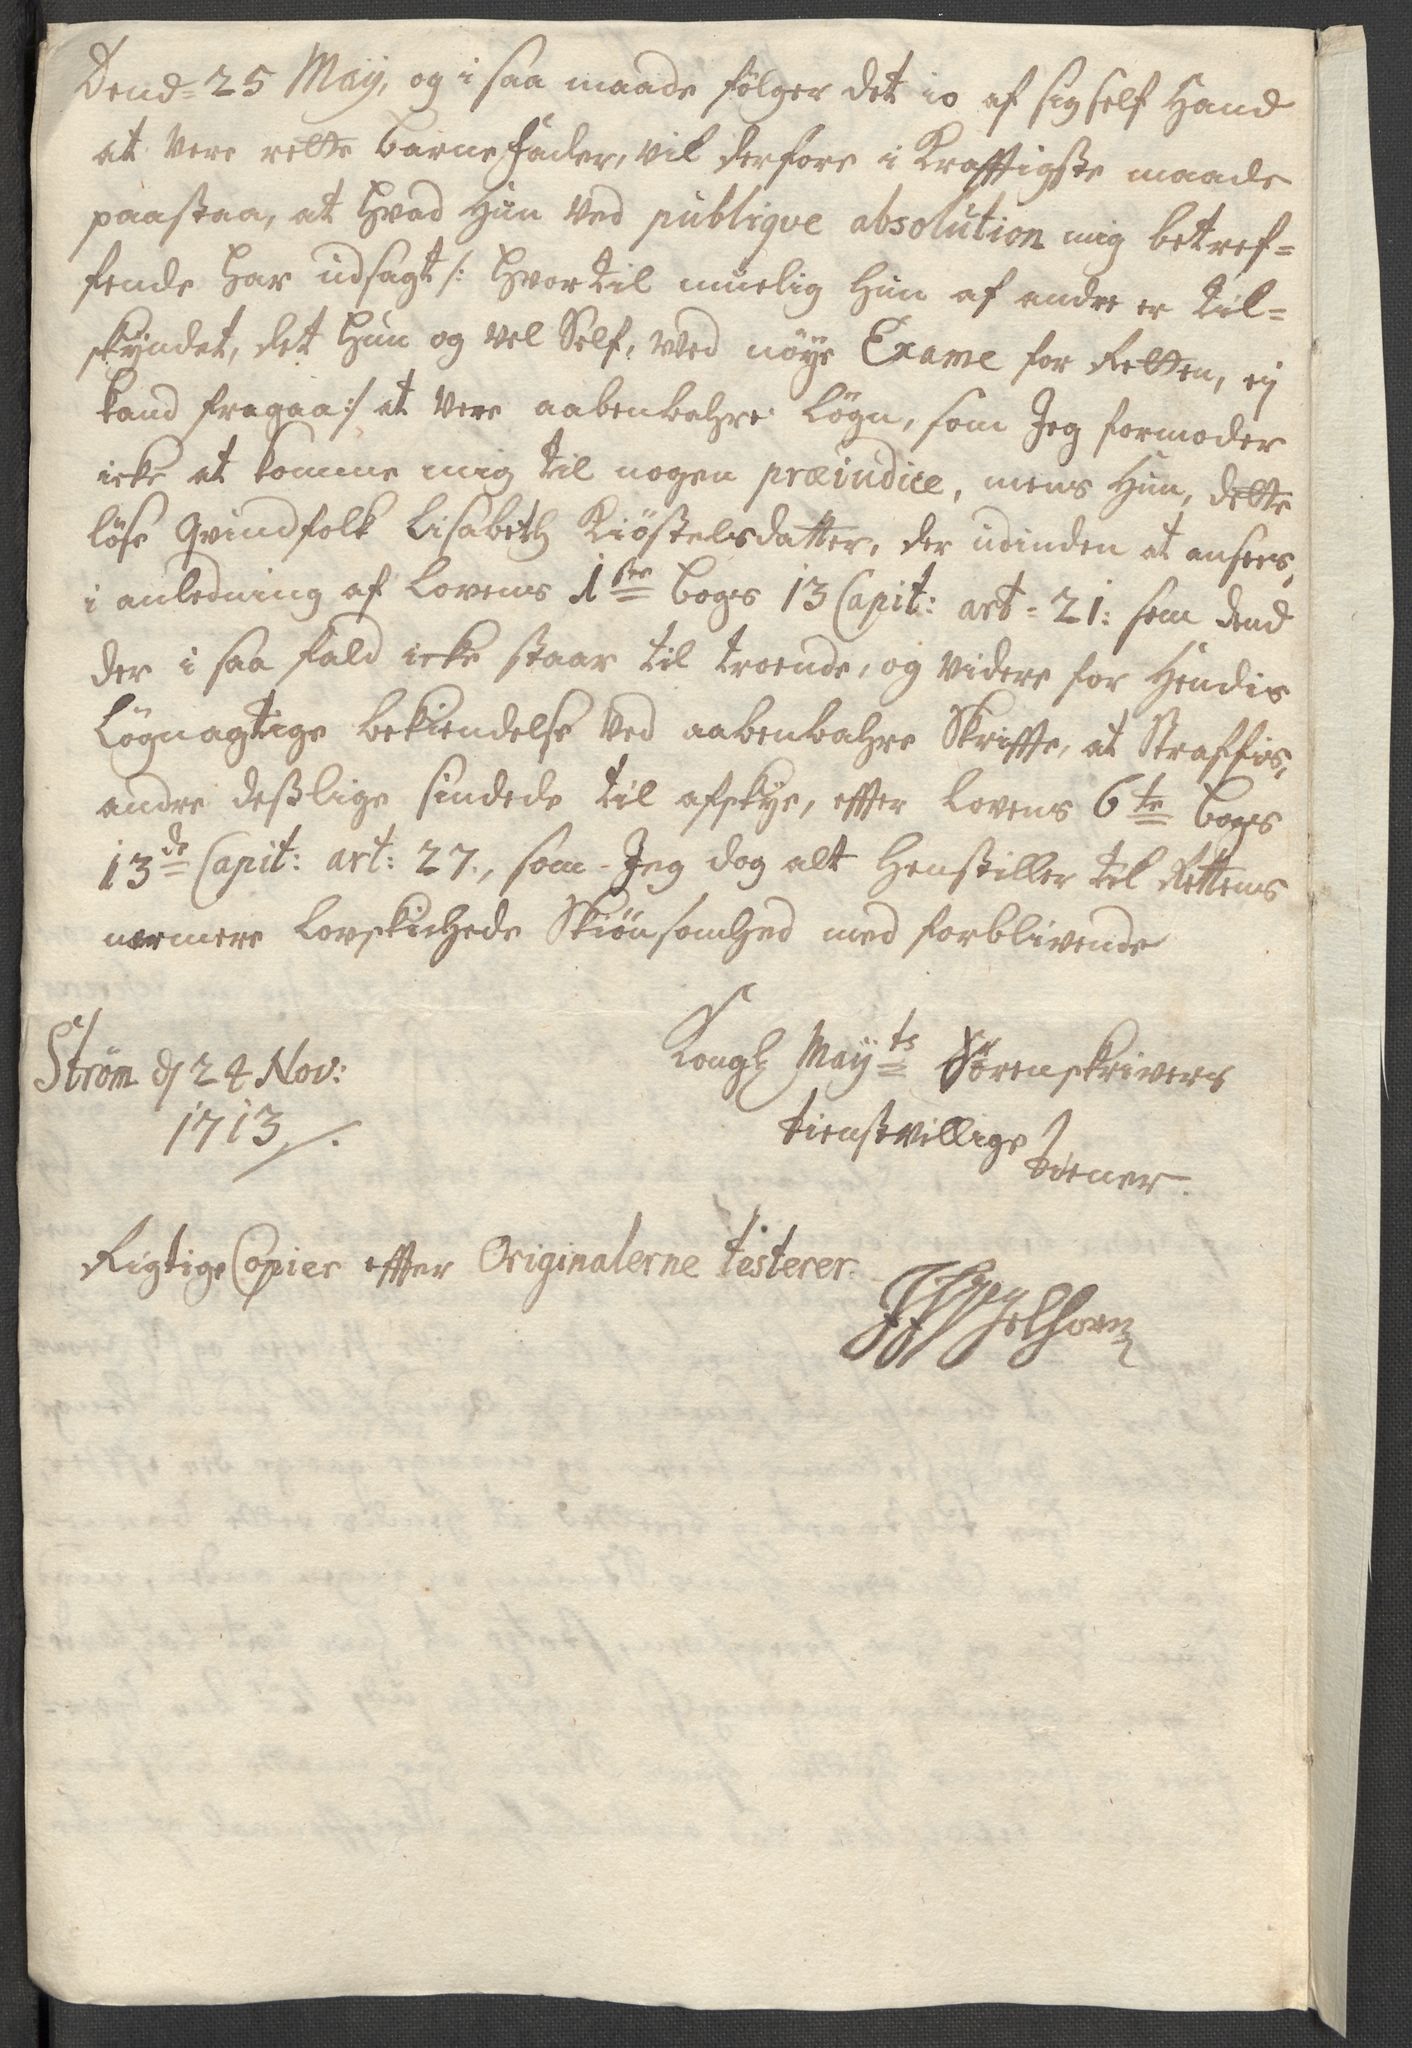 Dend= 25 May, og i saa maade følger det io af sig self Hand
at vere rette barne fader, vil derfore i Krafftigste maade
paastaa, at hvad Hun ved publiqve absolution mig betref=
fende har udsagt /: hvortil muelig hun af andre er til=
skyndet, det hun og vel Self, ved nøye Exame for Retten, ej
kand fragaa :/ at vere aabenbahre Løgn, som Jeg formoder
icke at komme mig til nogen præiudice, mens Hun, dette
løse Qvindfolk Lisabeth Kiøstelsdatter, der udinden at ansees,
i anledning af Lovens 1ste bogs 13 Capit: art= 21: som dend
der i saa fald icke staar til troende, og videre for Hendis
Løgnagtige bekiendelse ved aabenbahre Skriffte, at Straffis,
andre desslige sindede til afskye, effter Lovens 6te bogs
13de Capit: art: 27., som Jeg dog alt henstiller til Rettens
nærmere Lovskickede Skiønsomhed med forblivende
Kongl Mayts Sorenskrivers
Strøm d 24 Nov:
1713 /.
tienstvillige
tiener.
Rigtige Copier effter Originalerne testerer